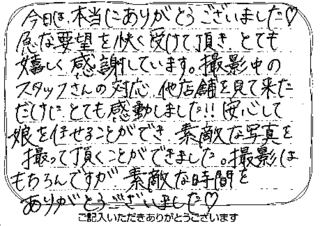 今日は、本当にありがとうございました♡
急な要望を快く受けて頂き とても
嬉しく 感謝しています。撮影中の
スタッフさんの対応 他店舗を見て来た
だけに とても感動しました!! 安心して
娘を任せることができ 素敵な写真を
撮って頂くことができました。撮影は
もちろんですが 素敵な時間を
ありがとうございました♡
ご記入いただきありがとうございます